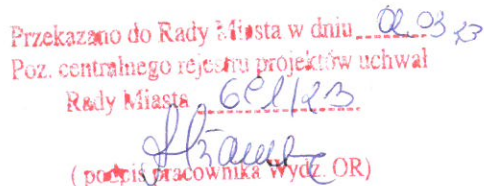 Przekazano do Rady Miasta w dniu 02.03.23
Poz. centralnego rejestru projektów uchwał
Rady Miasta
( podpis pracownika Wydz. OR)